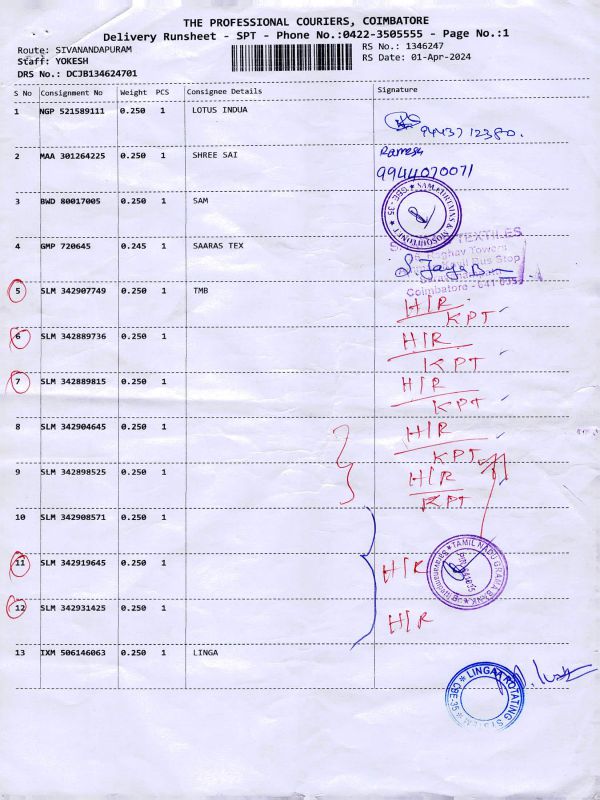 THE PROFESSIONAL COURIERS, COIMBATORE
Delivery Runsheet - SPT - Phone No.:0422-3505555 - Page No.:1
Route: SIVANANDAPURAM
Staff: YOKESH
DRS No.: DCJB134624701
RS No.: 1346247
RS Date: 01-Apr-2024
S No Consignment No Weight PCS Consignee Details Signature
1 NGP 521589111 0.250 1 LOTUS INDUA
9443712380.
2 MAA 301264225 0.250 1 SHREE SAI Ramesh
9944070071
3 BWD 80017005 0.250 1 SAM
SAM CURTAINS & MOSQUITONET CBE-35
4 GMP 720645 0.245 1 SAARAS TEX
TEXTILES
Raghav Towers
Bus Stop
Coimbatore - 641 035
5 SLM 342907749 0.250 1 TMB H/R
KPT
6 SLM 342889736 0.250 1 H/R
KPT
7 SLM 342889815 0.250 1 H/R
KPT
8 SLM 342904645 0.250 1 H/R
KPT
9 SLM 342898525 0.250 1 H/R
KPT
10 SLM 342908571 0.250 1
11 SLM 342919645 0.250 1 H/R
TAMIL NADU GRAMA BANK
12 SLM 342931425 0.250 1 H/R
13 IXM 506146063 0.250 1 LINGA
LINGAA ROTATING SYSTEM CBE-35